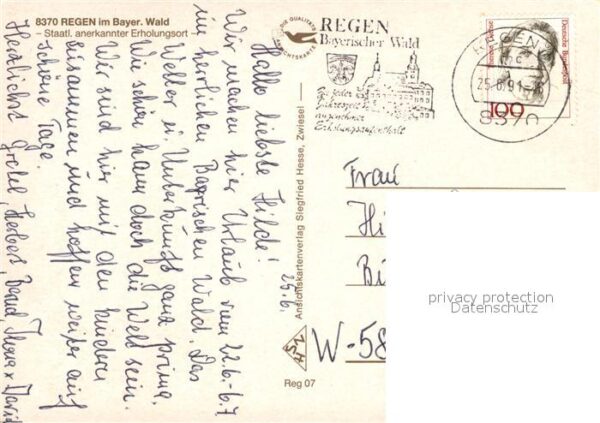 8370 REGEN im Bayer. Wald
- Staatl. anerkannter Erholungsort -
25.6.
Hallo liebste Hilde!
Wir machen hier Urlaub vom 22.6.-6.7.
im herrlichen Bayrischen Wald. Das
Wetter u. Unterkunft ganz prima.
Wie schön kann doch die Welt sein.
Wir sind hier mit den Kindern
zusammen und hoffen weiter auf
schöne Tage
Herzlichst Gretel, Herbert, Bernd,
DIE QUALITÄTS
ANSICHTSKARTE
Ansichtskartenverlag Siegfried Hesse, Zwiesel
Reg 07
REGEN
Bayerischer Wald
Zu jeder
Jahreszeit
angenehmer
Erholungsaufenthalt
REGEN
25.6.91
8370
Deutsche Bundespost
100
Frau
Hi
Bi
W-58
privacy protection
Datenschutz